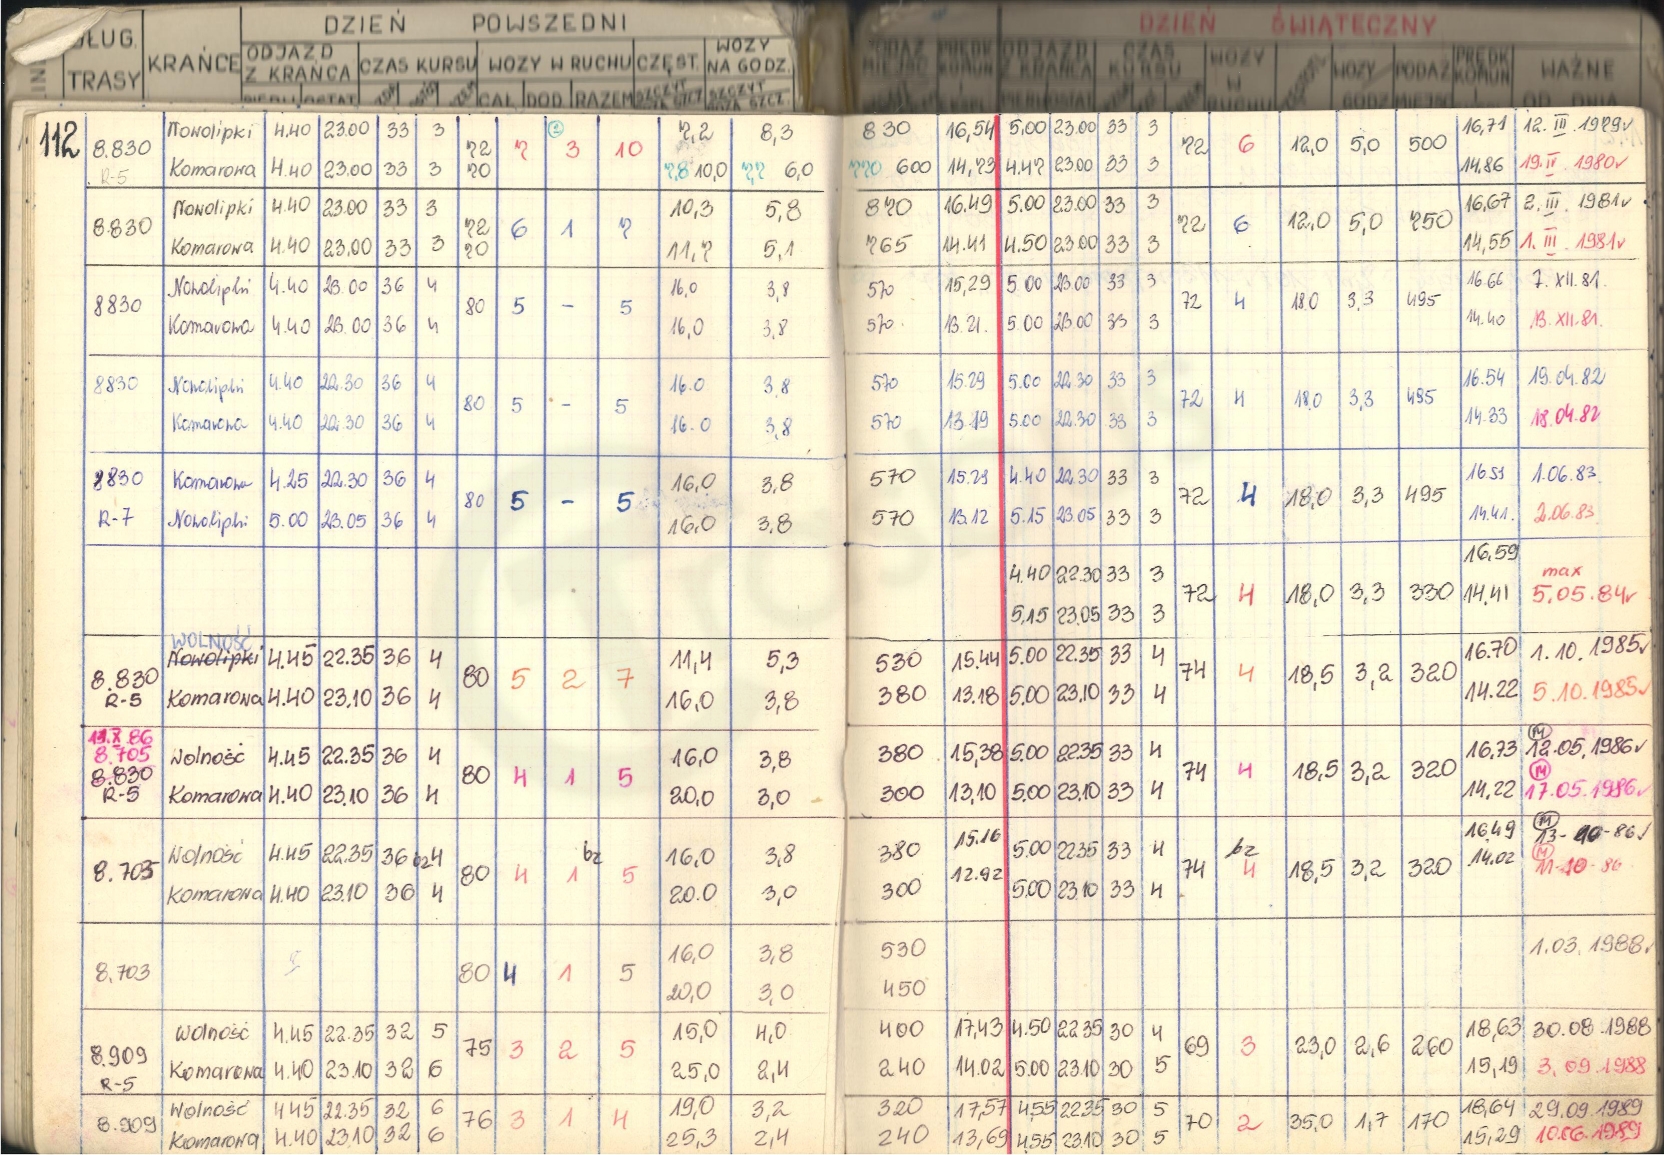 DZIEŃ POWSZEDNI DZIEŃ ŚWIĄTECZNY
DŁUG. TRASY KRAŃCE ODJAZD Z KRAŃCA CZAS KURSU WOZY W RUCHU CZĘST. WOZY NA GODZ. PODAŻ MIEJSC PRĘDK KOMUN ODJAZD Z KRAŃCA CZAS KURSU WOZY W RUCHU WOZY GODZ PODAŻ MIEJSC PRĘDK KOMUN WAŻNE OD DNIA
CAŁ. DOD. RAZEM SZCZYT SZCZYT
112 8.830 Nowolipki 4.40 23.00 33 3 72 7 3 10 7,2 8,3 830 16,54 5.00 23.00 33 3 72 6 12,0 5,0 500 16,71 12. III. 1979
R-5 Komarowa 4.40 23.00 33 3 70 7,8 10,0 7,7 6,0 770 600 14,73 4.47 23.00 33 3 14,86 19. IV. 1980
8.830 Nowolipki 4.40 23.00 33 3 72 6 1 7 10,3 5,8 870 16.49 5.00 23.00 33 3 72 6 12,0 5,0 750 16,67 2. III. 1981
Komarowa 4.40 23.00 33 3 70 11,7 5,1 765 14.41 4.50 23.00 33 3 14,55 1. III. 1981
8830 Nowolipki 4.40 23.00 36 4 80 5 – 5 16,0 3,8 570 15,29 5.00 23.00 33 3 72 4 18.0 3,3 495 16.66 7. XII.81.
Komarowa 4.40 23.00 36 4 16,0 3,8 570. 13.21. 5.00 23.00 33 3 14.40 13. XII.81.
8830 Nowolipki 4.40 22.30 36 4 80 5 – 5 16.0 3.8 570 15.29 5.00 22.30 33 3 72 4 18.0 3,3 495 16.54 19.04.82
Komarowa 4.40 22.30 36 4 16.0 3,8 570 13.19 5.00 22.30 33 3 14.33 18.04.82
8830 Komarowa 4.25 22.30 36 4 80 5 – 5 16,0 3,8 570 15.29 4.40 22.30 33 3 72 4 18,0 3,3 495 16.51 1.06.83.
R-7 Nowolipki 5.00 23.05 36 4 16,0 3,8 570 13.12 5.15 23.05 33 3 14.41. 2.06.83
4.40 22.30 33 3 72 4 18,0 3,3 330 16,59 max
5,15 23.05 33 3 14,41 5.05.84
WOLNOŚĆ
8.830 Nowolipki 4.45 22.35 36 4 80 5 2 7 11,4 5,3 530 15.44 5.00 22.35 33 4 74 4 18,5 3,2 320 16.70 1.10.1985
R-5 Komarowa 4.40 23,10 36 4 16,0 3,8 380 13.18 5,00 23,10 33 4 14.22 5.10.1985
13.X.86
8.705 Wolność 4.45 22.35 36 4 80 4 1 5 16,0 3,8 380 15,38 5.00 22.35 33 4 74 4 18,5 3,2 320 16,73 M 12.05.1986
8.830
R-5 Komarowa 4.40 23.10 36 4 20,0 3,0 300 13,10 5.00 23.10 33 4 14,22 M 17.05.1986
8.705 Wolność 4.45 22.35 36 bz 4 80 4 1 bz 5 16,0 3,8 380 15.16 5.00 22.35 33 4 74 bz 4 18,5 3,2 320 16,49 M 13-10-86
Komarowa 4.40 23.10 36 4 20.0 3,0 300 12.92 5.00 23.10 33 4 14.02 M 11-10-86
8.703 80 4 1 5 16,0 3,8 530 1.03.1988
20,0 3,0 450
8.909 Wolność 4.45 22.35 32 5 75 3 2 5 15,0 4,0 400 17,43 4.50 22.35 30 4 69 3 23,0 2,6 260 18,63 30.08.1988
R-5 Komarowa 4.40 23.10 32 6 25,0 2,4 240 14.02 5.00 23.10 30 5 15,19 3.09.1988
8.909 Wolność 4.45 22.35 32 6 76 3 1 4 19,0 3,2 320 17,57 4.55 22.35 30 5 70 2 35,0 1,7 170 18,64 29.09.1989
Komarowa 4.40 23.10 32 6 25,3 2,4 240 13,69 4.55 23.10 30 5 15,29 10.06.1989